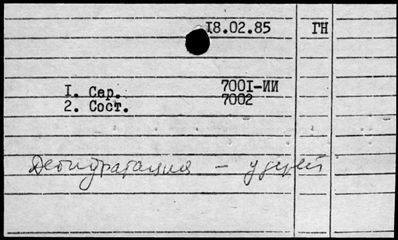 18.02.85 ГН
1. Сер. 7001-ИИ
2. Сост. 7002
Дегидратация –